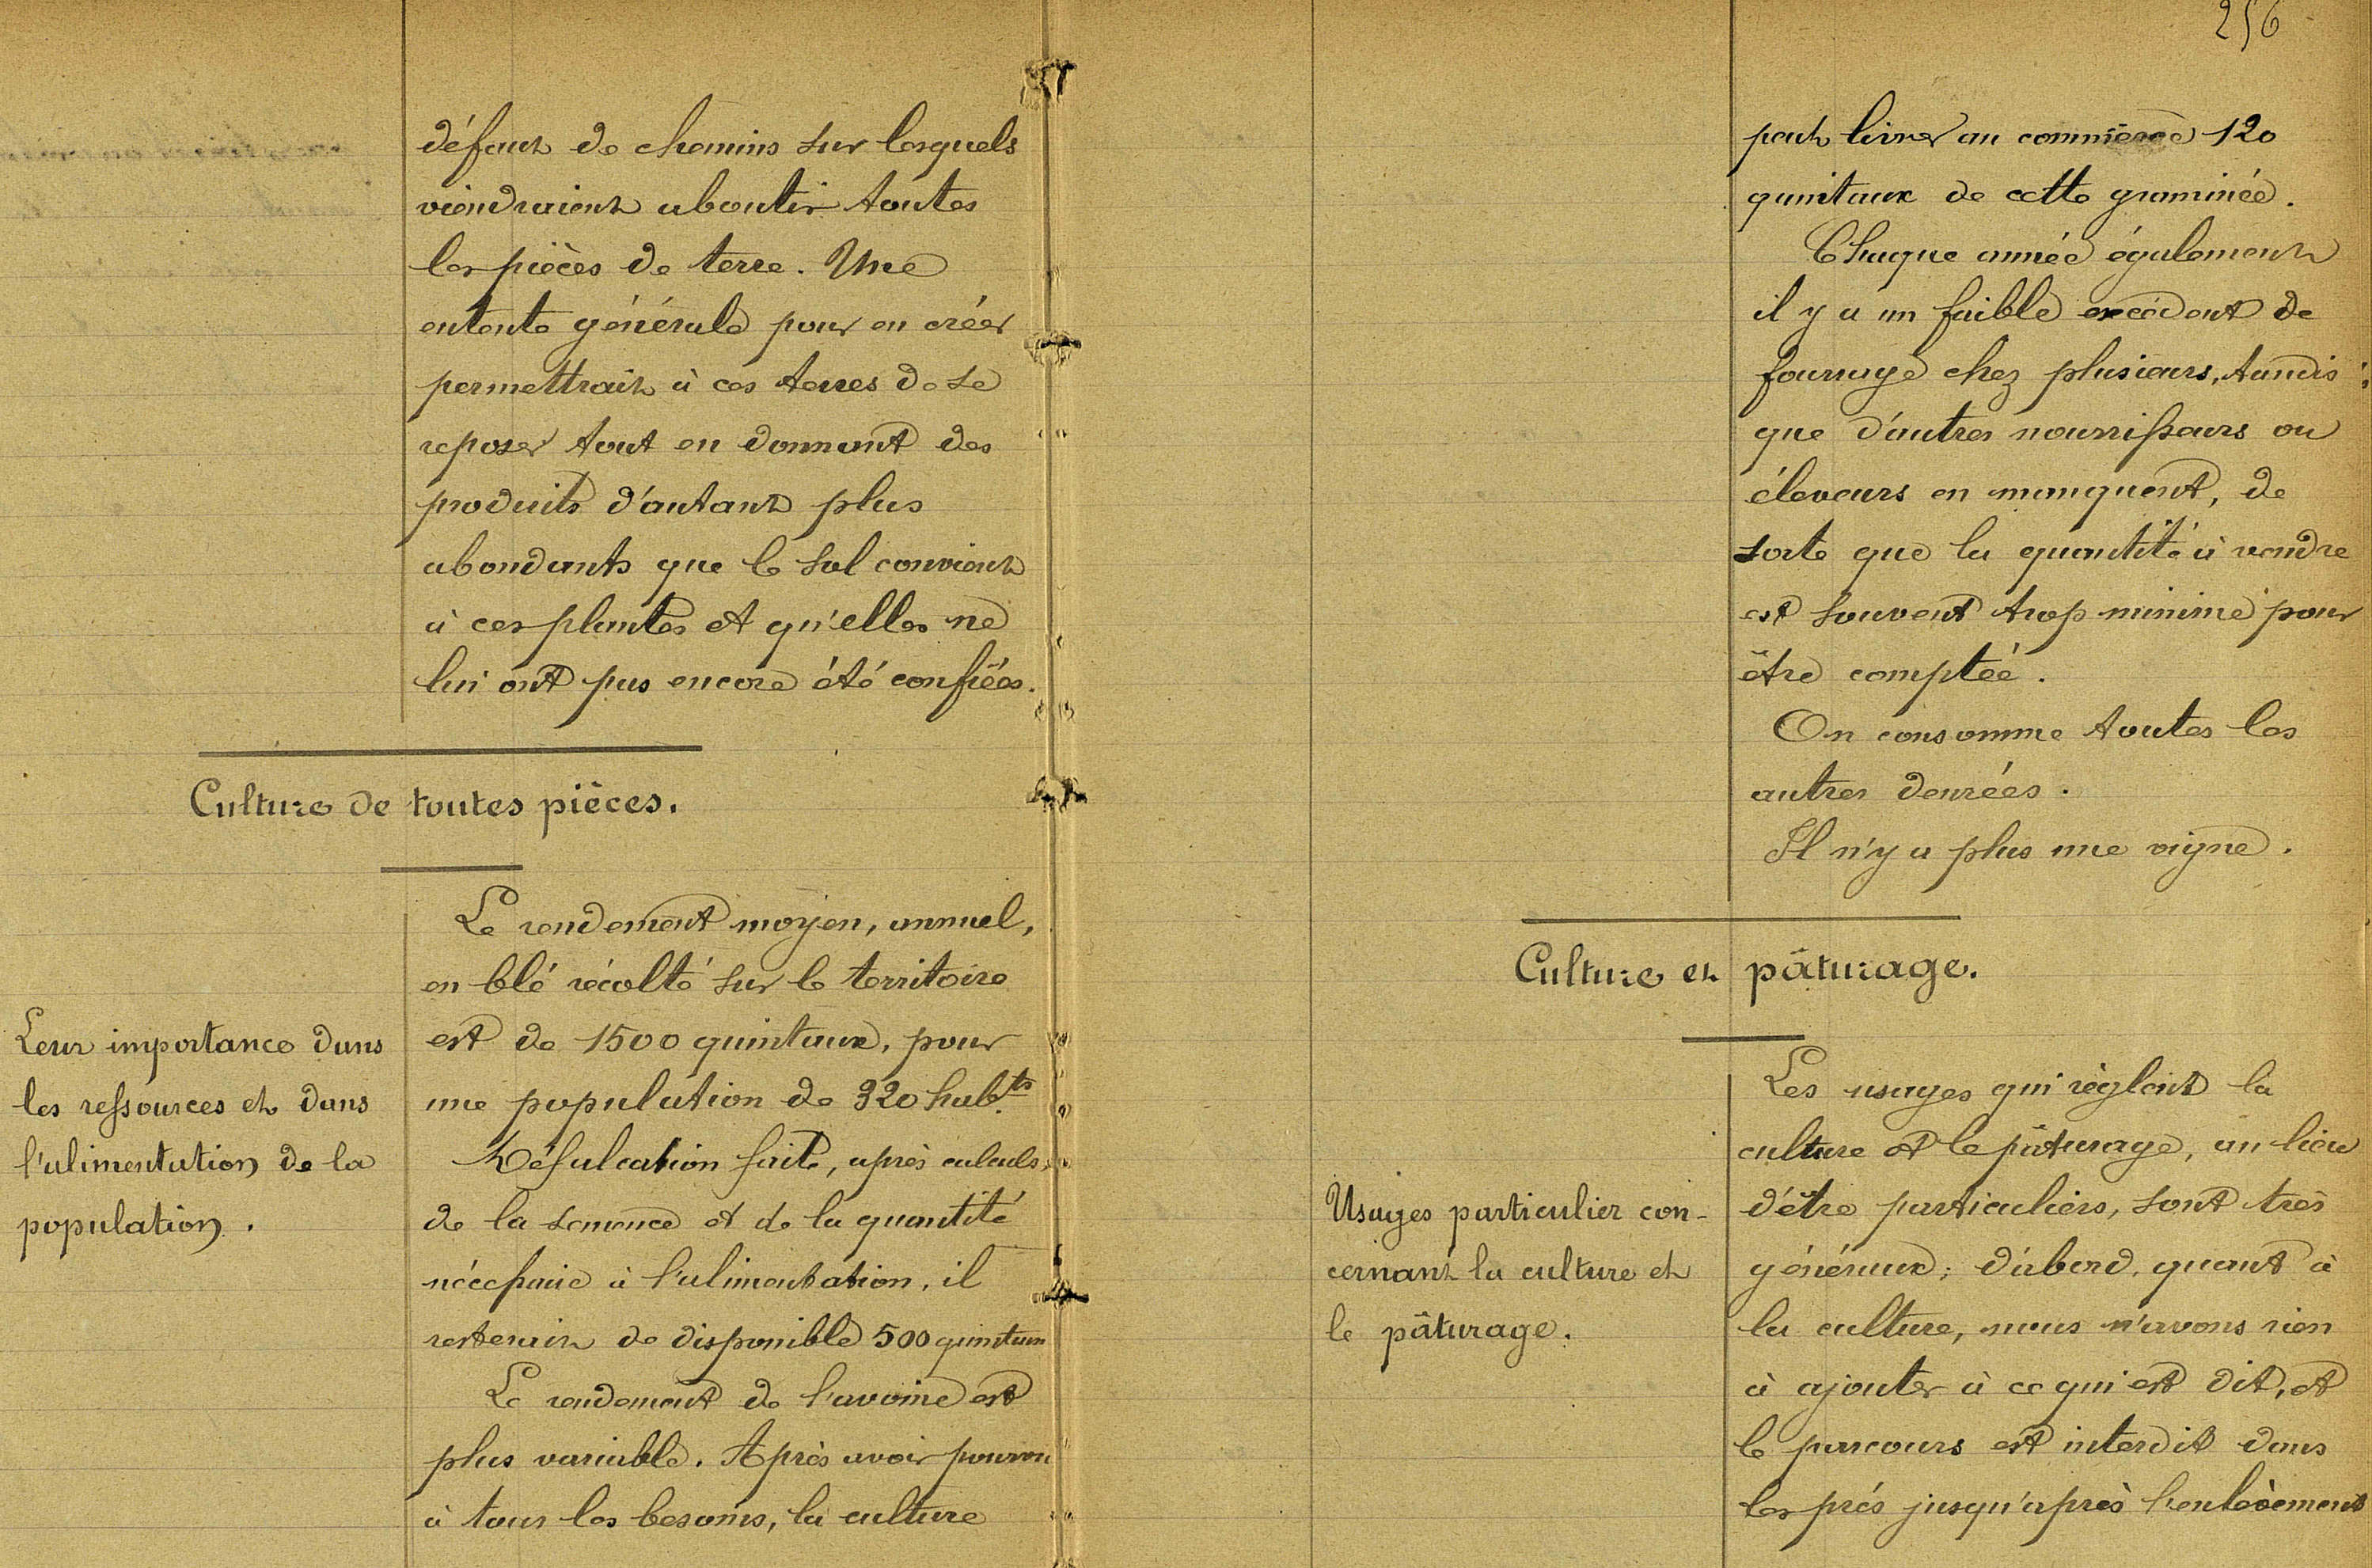 défaut de chemins sur lesquels
viendraient aboutir toutes
les pièces de terre. Une
entente générale pour en créer
permettrait à ces terres de se
reposer tout en donnant des
produits d'autant plus
abondants que le sol convient
à ces plantes et qu'elles ne
lui ont pas encore été confiées.
Culture de toutes pièces.
Leur importance dans
les ressources et dans
l'alimentation de la
population.
Le rendement moyen, annuel,
en blé récolté sur le territoire
est de 1500 quintaux, pour
une population de 320 habts
Défalcation faite, après calculs
de la semence et de la quantité
nécessaire à l'alimentation, il
resterait de disponible 500 quintaux
Le rendement de l'avoine est
plus variable. Après avoir pourvu
à tous les besoins, la culture
256
peut livrer au commerce 120
quintaux de cette graminée.
Chaque année également
il y a un faible excédent de
fourrage chez plusieurs, tandis
que d'autres nourrisseurs ou
éleveurs en manquent, de
sorte que la quantité à vendre
est souvent trop minime pour
être comptée.
On consomme toutes les
autres denrées.
Il n'y a plus une vigne.
Culture et pâturage.
Usages particulier con-
cernant la culture et
le pâturage.
Les usages qui règlent la
culture et le pâturage, au lieu
d'être particuliers, sont très
généraux; d'abord, quant à
la culture, nous n'avons rien
à ajouter à ce qui est dit, et
le parcours est interdit dans
les prés jusqu'après l'enlèvement